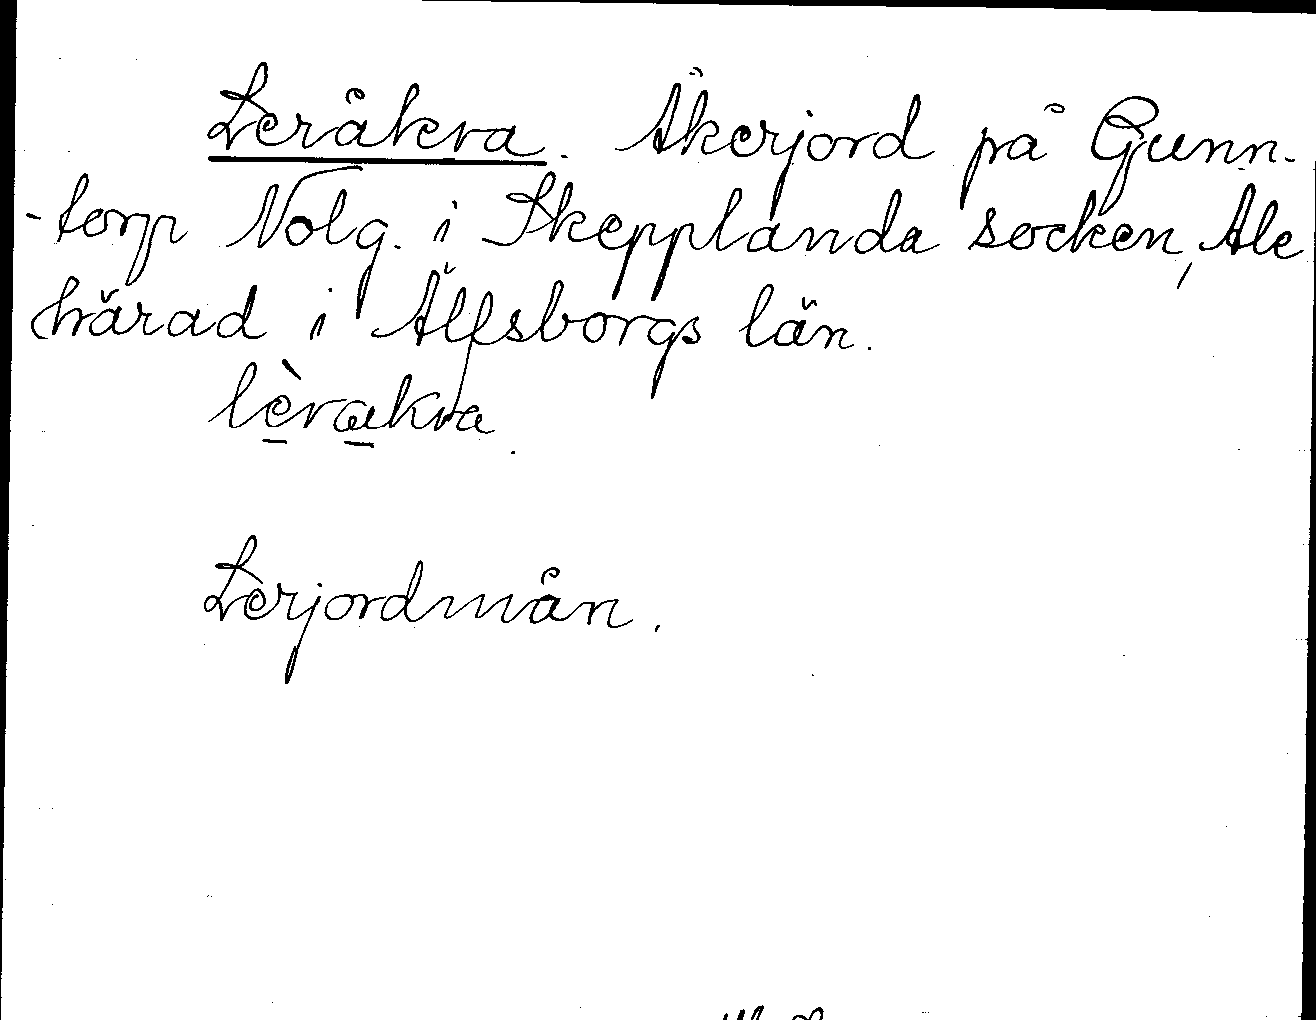 Leråkra. Åkerjord på Gunn-
-torp Nolg. i Skepplanda socken, Ale
härad i Älfsborgs län.
lèrakra.
Lerjordmån.